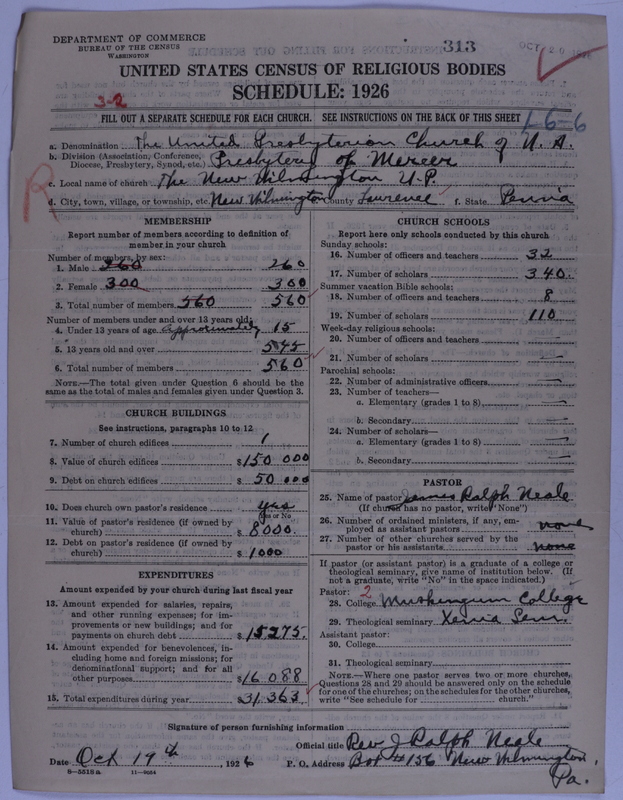 DEPARTMENT OF COMMERCE
BUREAU OF THE CENSUS
WASHINGTON
313
OCT 20
UNITED STATES CENSUS OF RELIGIOUS BODIES
SCHEDULE: 1926
3-2
FILL OUT A SEPARATE SCHEDULE FOR EACH CHURCH. SEE INSTRUCTIONS ON THE BACK OF THIS SHEET
a. Denomination The United Presbyterian Church of N. A.
b. Division (Association, Conference, Diocese, Presbytery, Synod, etc.) Presbytery of Mercer
c. Local name of church The New Wilmington U.P.
R
d. City, town, village, or township, etc. New Wilmington County Lawrence f. State Penna
MEMBERSHIP
Report number of members according to definition of
member in your church
Number of members, by sex:
1. Male 260 260
2. Female 300 300
3. Total number of members 560 560
Number of members under and over 13 years old:
4. Under 13 years of age approximately 15
5. 13 years old and over 545
6. Total number of members 560
NOTE.—The total given under Question 6 should be the
same as the total of males and females given under Question 3.
CHURCH BUILDINGS
See instructions, paragraphs 10 to 12
7. Number of church edifices 1
8. Value of church edifices $150 000
9. Debt on church edifices $50 000
10. Does church own pastor's residence yes
(Yes or No)
11. Value of pastor's residence (if owned by
church) $8000
12. Debt on pastor's residence (if owned by
church) $1000
EXPENDITURES
Amount expended by your church during last fiscal year
13. Amount expended for salaries, repairs,
and other running expenses; for im-
provements or new buildings; and for
payments on church debt $15275
14. Amount expended for benevolences, in-
cluding home and foreign missions; for
denominational support; and for all
other purposes $16 088
15. Total expenditures during year $31 363
CHURCH SCHOOLS
Report here only schools conducted by this church
Sunday schools:
16. Number of officers and teachers 32
17. Number of scholars 340
Summer vacation Bible schools:
18. Number of officers and teachers 8
19. Number of scholars 110
Week-day religious schools:
20. Number of officers and teachers —
21. Number of scholars —
Parochial schools:
22. Number of administrative officers —
23. Number of teachers—
a. Elementary (grades 1 to 8) —
b. Secondary —
24. Number of scholars—
a. Elementary (grades 1 to 8) —
b. Secondary —
PASTOR
25. Name of pastor James Ralph Neale
(If church has no pastor, write "None")
26. Number of ordained ministers, if any, em-
ployed as assistant pastors none
27. Number of other churches served by the
pastor or his assistants none
If pastor (or assistant pastor) is a graduate of a college or
theological seminary, give name of institution below. (If
not a graduate, write "No" in the space indicated.)
Pastor: 2
28. College Muskingum College
29. Theological seminary Xenia Sem.
Assistant pastor:
30. College
31. Theological seminary
NOTE.—Where one pastor serves two or more churches,
Questions 28 and 29 should be answered only on the schedule
for one of the churches; on the schedules for the other churches,
write "See schedule for church."
Signature of person furnishing information
Official title Rev J Ralph Neale
Date Oct 19th, 1926 P. O. Address Box #156 New Wilmington,
Pa.
8-5518 a 11-9064